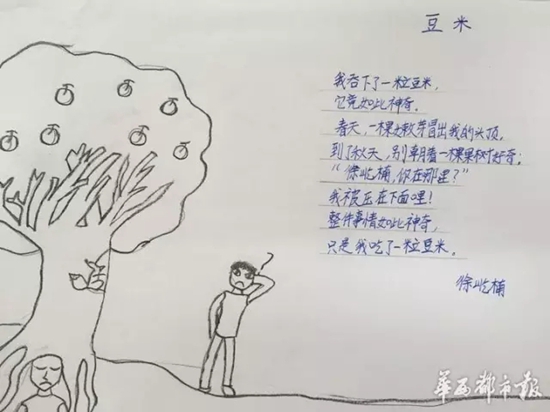 豆米
我吞下了一粒豆米,
它竟如此神奇,
春天,一棵嫩芽冒出我的头顶,
到了秋天,别人朝着一棵果树好奇:
"徐屹楠,你在哪里?"
我被压在下面哩!
整件事情如此神奇,
只是我吃了一粒豆米。
徐屹楠
?
华西都市报